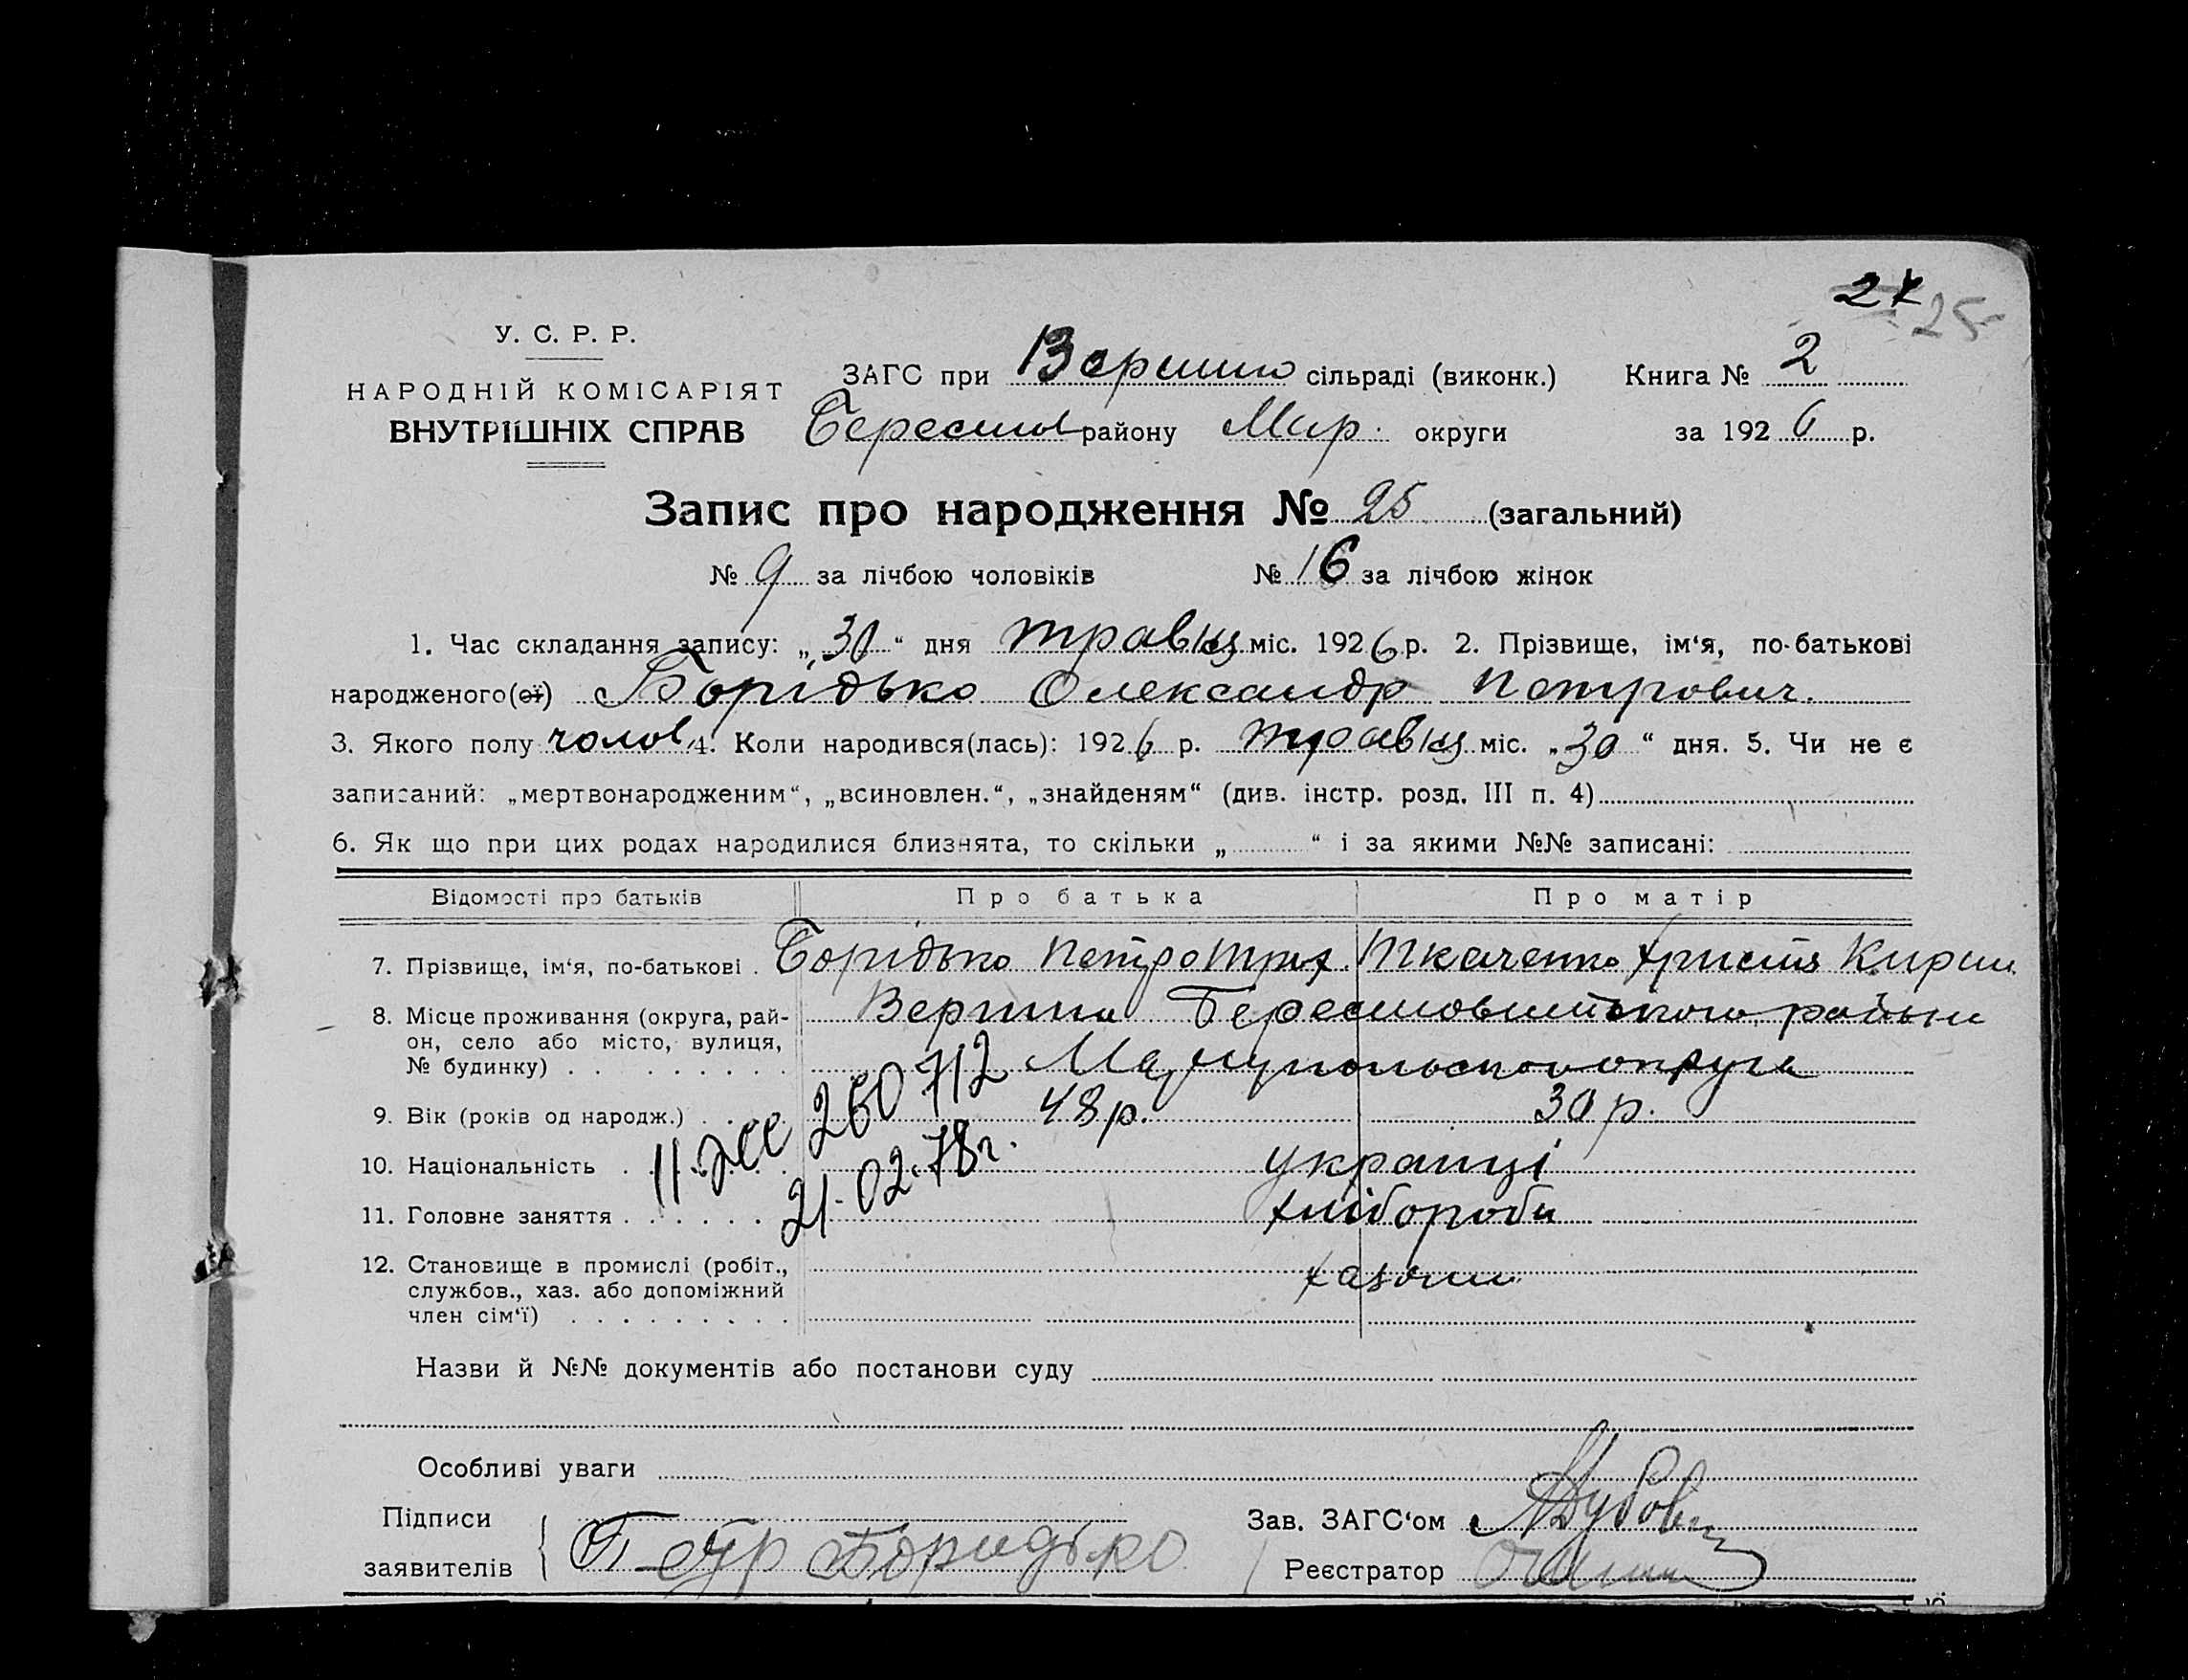 24 25
У. С. Р. Р.
НАРОДНІЙ КОМІСАРІЯТ
ВНУТРІШНІХ СПРАВ
ЗАГС при Вершино сільраді (виконк.) Книга № 2
Берестов району Мар. округи за 1926 р.
Запис про народження № 25 (загальний)
№ 9 за лічбою чоловіків № 16 за лічбою жінок
1. Час складання запису: „30“ дня травня міс. 1926 р. 2. Прізвище, ім‘я, по-батькові
народженого(ої) Борідько Олександр Петрович.
3. Якого полу чолов 4. Коли народився(лась): 1926 р. травня міс. „30“ дня. 5. Чи не є
записаний: „мертвонародженим“, „всиновлен.“, „знайденям“ (див. інстр. розд. III п. 4)
6. Як що при цих родах народилися близнята, то скільки „ “ і за якими №№ записані:
Відомості про батьків Про батька Про матір
7. Прізвище, ім‘я, по-батькові . Борідько Петро Триф. Ткаченко Христя Кирил
8. Місце проживання (округа, рай-
он, село або місто, вулиця,
№ будинку) Вершина Берестовського району
Маріупольської округи
9. Вік (років од народж.) 48 р. 30 р.
10. Національність українці
11. Головне заняття хлібороби
12. Становище в промислі (робіт.,
службов., хаз. або допоміжний
член сім‘ї) хазяїни
260712
21.02.78г.
Назви й №№ документів або постанови суду
Особливі уваги
Підписи
заявителів Петр Боридько
Зав. ЗАГС‘ом
Реєстратор